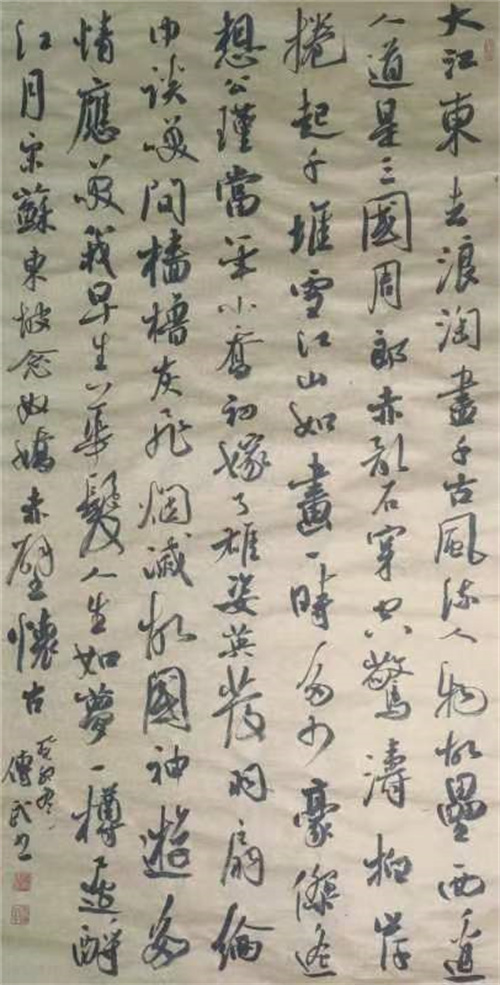 大江東去浪淘盡千古風流人物故壘西邊
人道是三國周郎赤乱石穿空驚濤拍岸
捲起千堆雪江山如畫一時多少豪傑遙
想公瑾當年小喬初嫁了雄姿英發羽扇綸
巾談笑間檣櫓灰飛烟滅故國神遊多
情應笑我早生華髮人生如夢一樽還酹
江月宋蘇東坡念奴嬌赤壁懷古
癸卯冬
傳武書